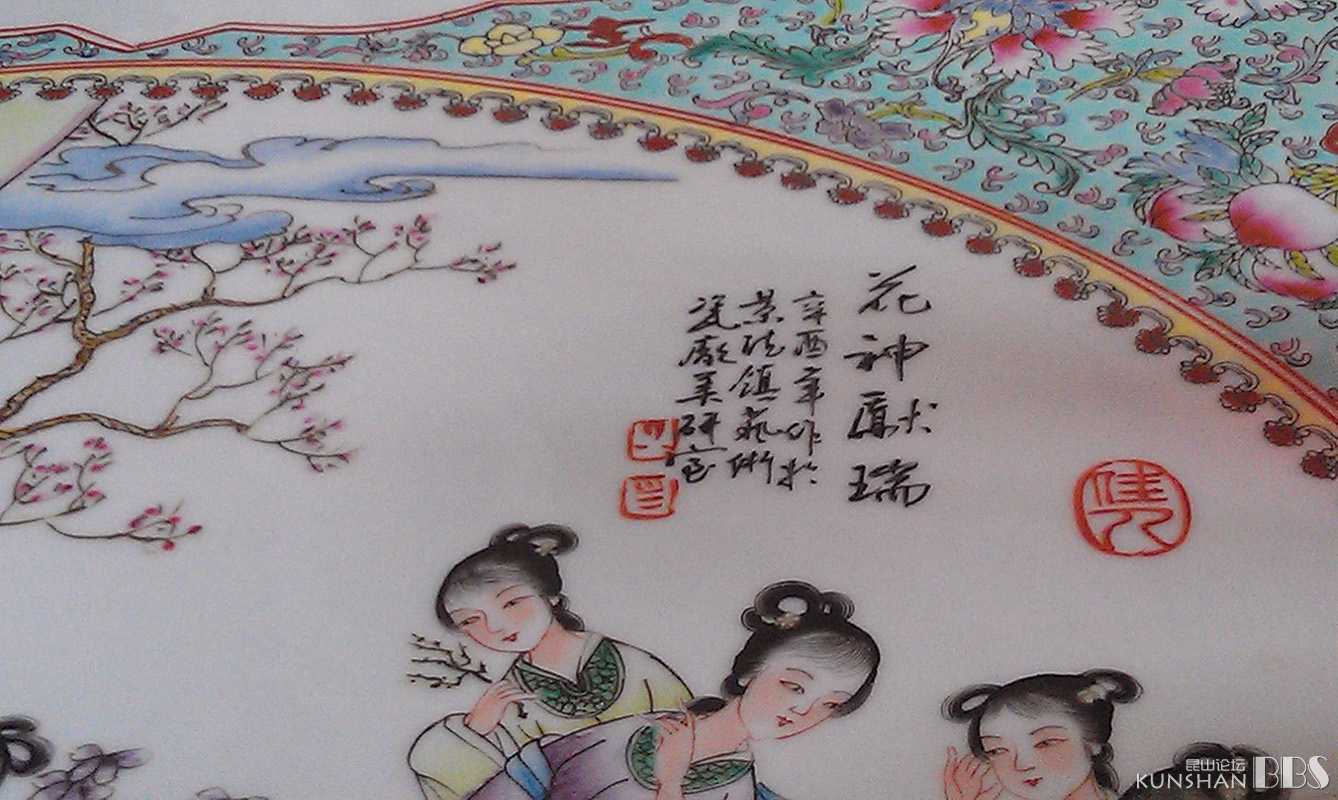 花神献瑞
辛酉年作于
景德镇艺術
瓷厰美研室
昆山论坛
KUNSHAN BBS